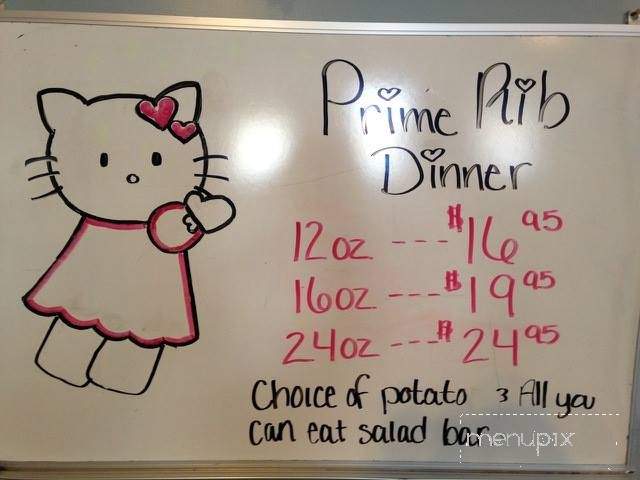 Prime Rib
Dinner
12oz ---$16 95
16oz ---$19 95
24oz ---$24 95
Choice of potato & All you
can eat salad bar
menupix